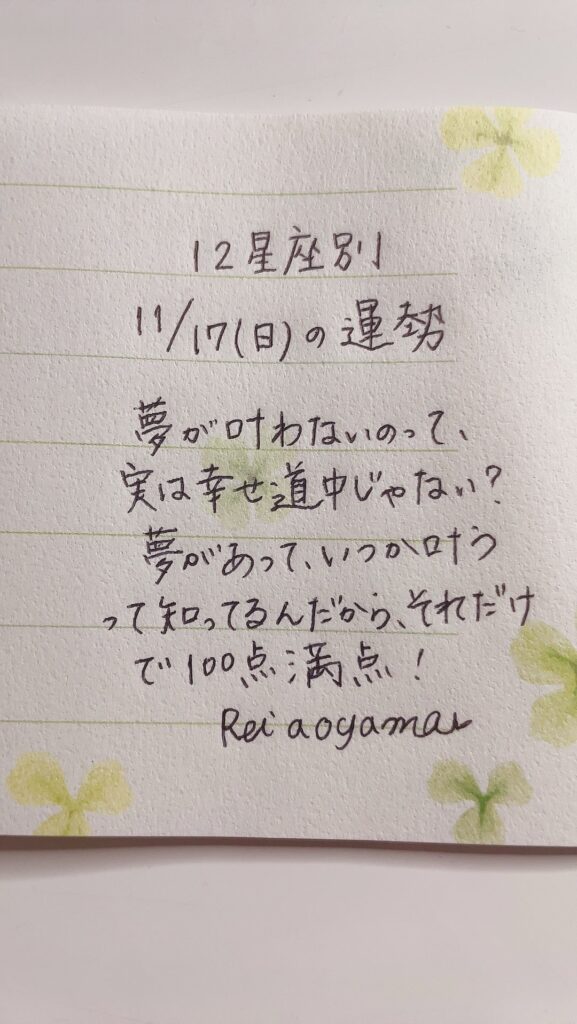 12星座別
11/17(日)の運勢
夢が叶わないのって、
実は幸せ道中じゃない?
夢があって、いつか叶う
って知ってるんだから、それだけ
で100点満点!
Rei aoyama